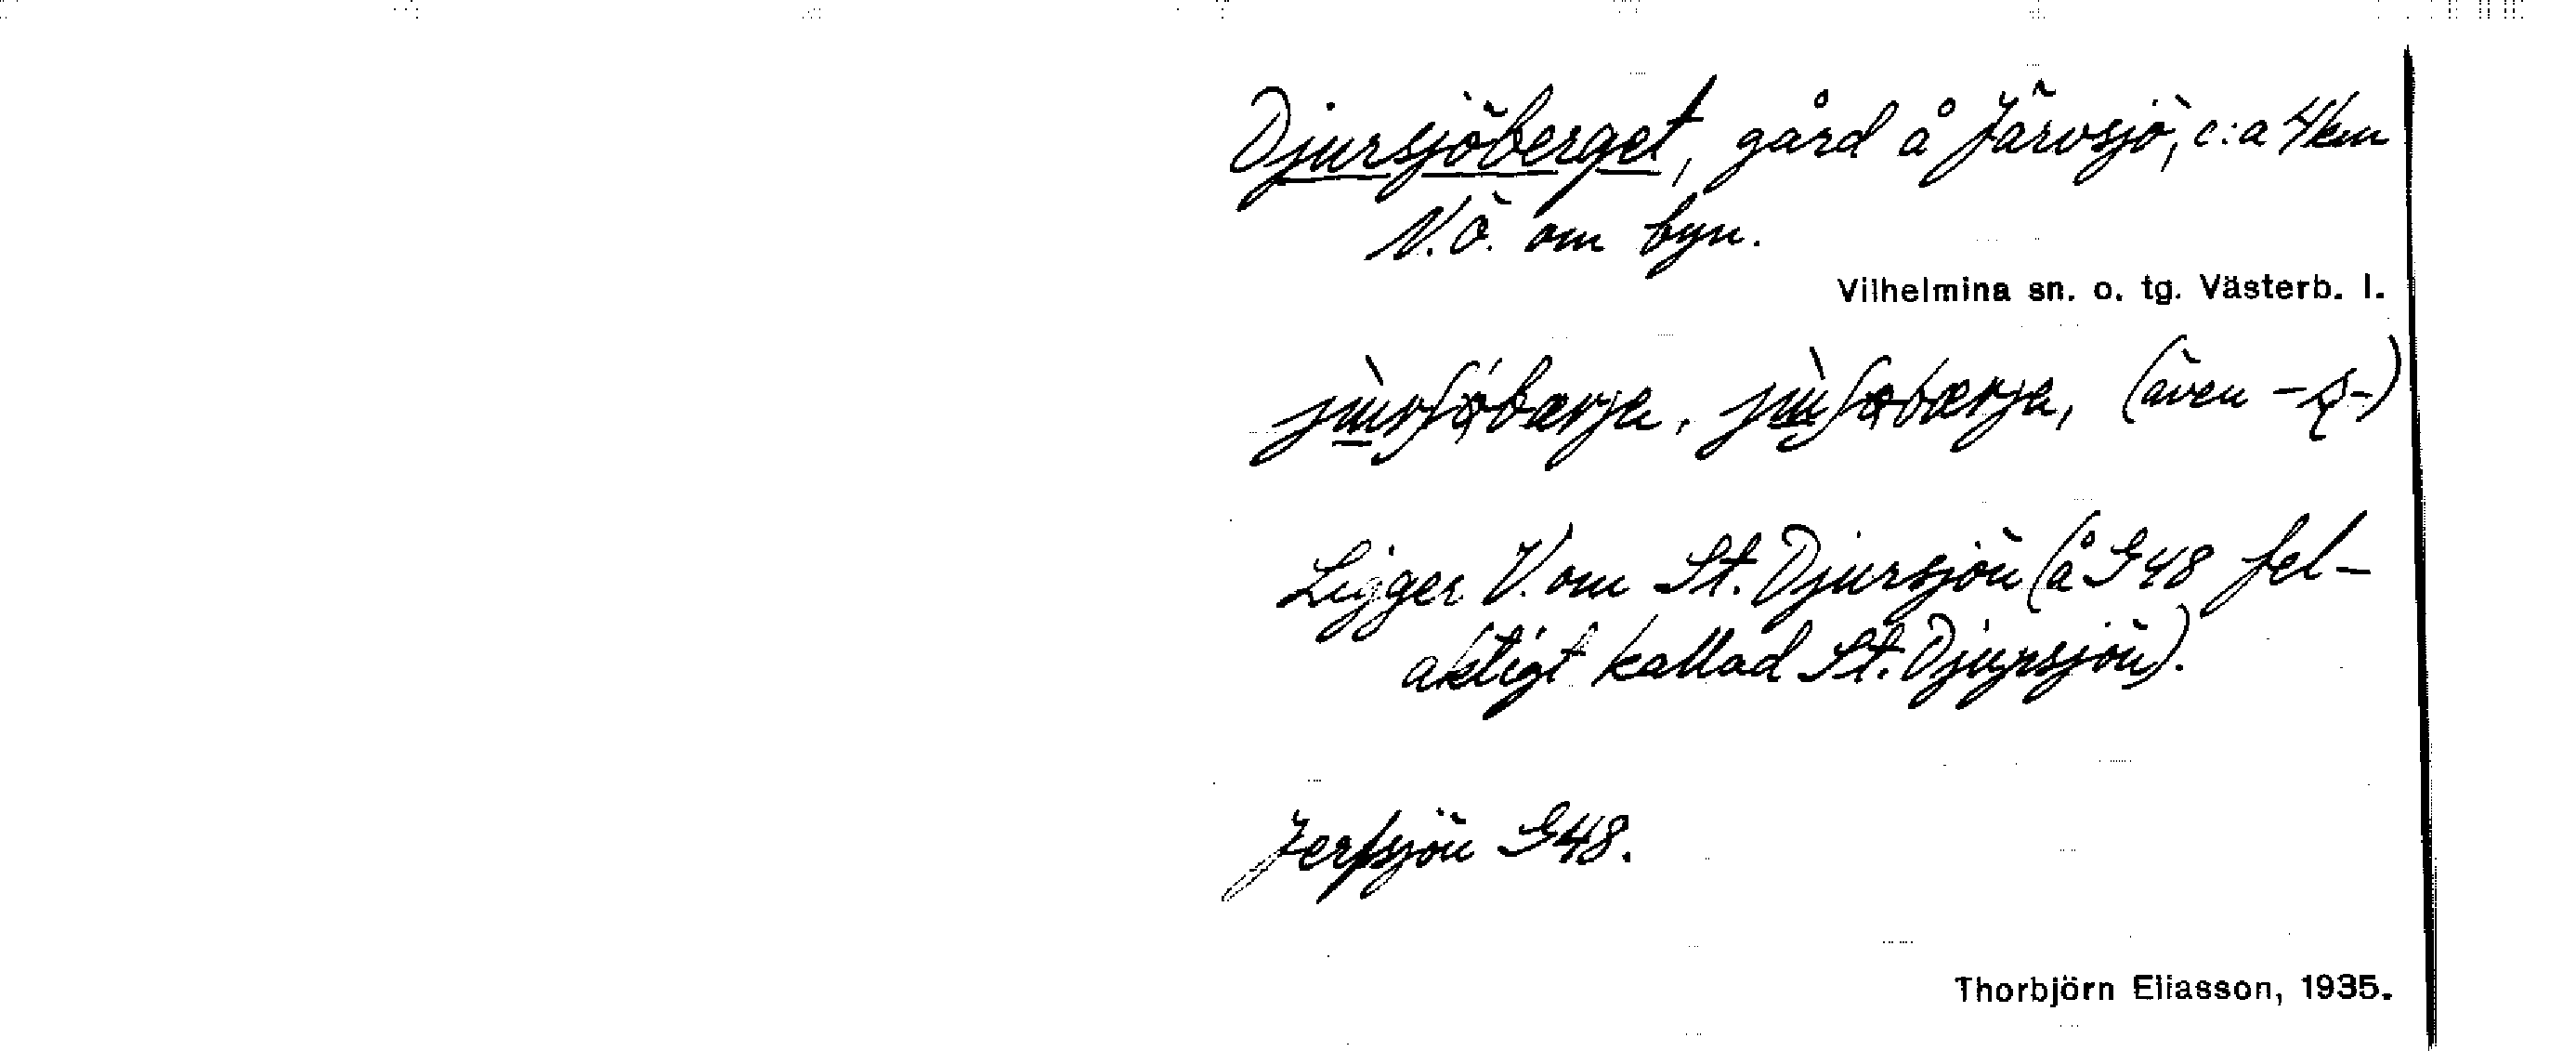 Djursjöberget, gård å Järvsjö, c:a 4 km
N.Ö. om byn.
Vilhelmina sn. o. tg. Västerb. l.
(även
Ligger V. om St. Djursjön (å G48 fel-
aktigt kallad St. Djupsjön).
Jerfsjön G48.
Thorbjörn Eliasson, 1935.